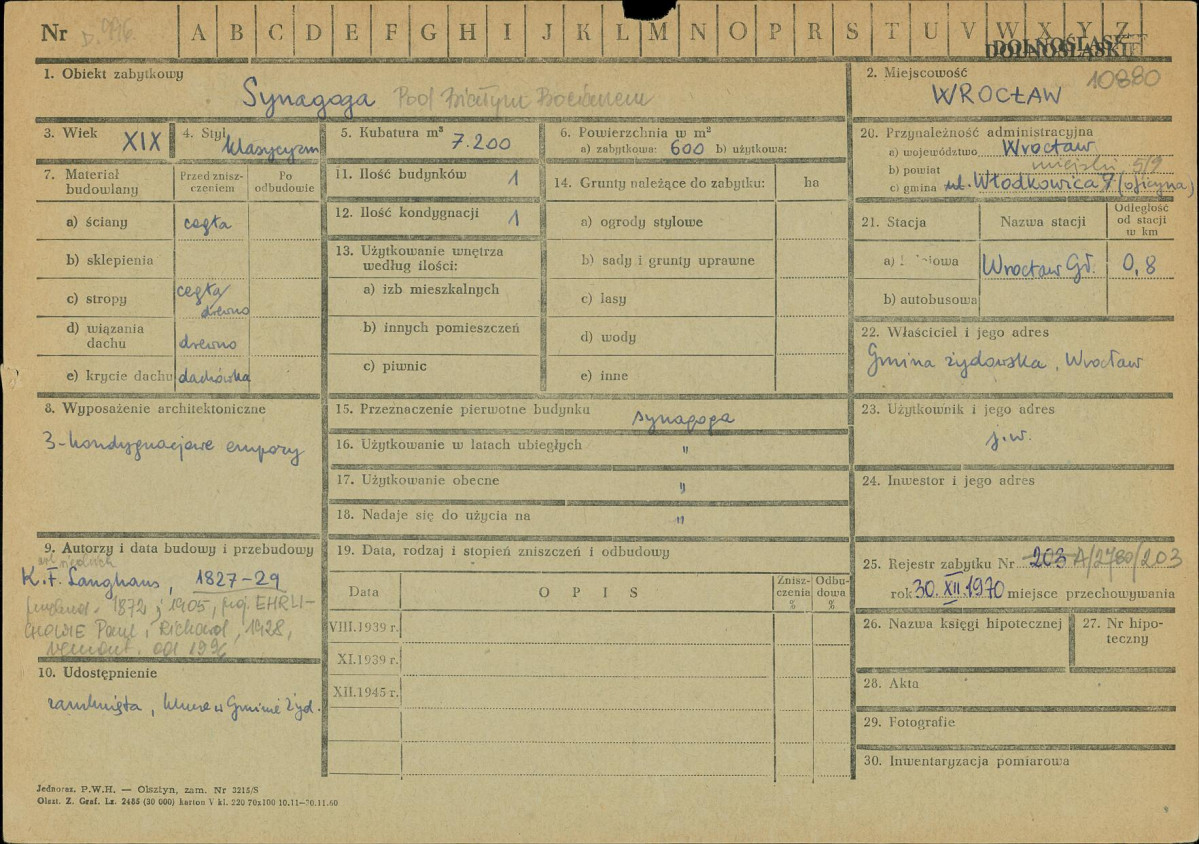 Nr D.996. A B C D E F G H I J K L M N O P R S T U V W X Y Z
DOLNOŚLĄSKIE
1. Obiekt zabytkowy
Synagoga Pod Białym Bocianem
2. Miejscowość 10880
WROCŁAW
3. Wiek XIX
4. Styl klasycyzm
5. Kubatura m³ 7.200
6. Powierzchnia w m²
a) zabytkowa: 600 b) użytkowa:
20. Przynależność administracyjna
a) województwo Wrocław
b) powiat miejski 5/9
c) gmina ul. Włodkowica 7 (oficyna)
7. Materiał budowlany
Przed zniszczeniem
Po odbudowie
a) ściany cegła
b) sklepienia
c) stropy cegła/drewno
d) wiązania dachu drewno
e) krycie dachu dachówka
11. Ilość budynków 1
12. Ilość kondygnacji 1
13. Użytkowanie wnętrza
według ilości:
a) izb mieszkalnych
b) innych pomieszczeń
c) piwnic
14. Grunty należące do zabytku: ha
a) ogrody stylowe
b) sady i grunty uprawne
c) lasy
d) wody
e) inne
21. Stacja Nazwa stacji Odległość od stacji w km
a) Wrocław Gł. 0,8
b) autobusowa
22. Właściciel i jego adres
Gmina żydowska, Wrocław
8. Wyposażenie architektoniczne
3-kondygnacjowe empory
15. Przeznaczenie pierwotne budynku synagoga
16. Użytkowanie w latach ubiegłych "
17. Użytkowanie obecne "
18. Nadaje się do użycia na "
23. Użytkownik i jego adres
j.w.
24. Inwestor i jego adres
9. Autorzy i data budowy i przebudowy
K.F. Langhans, 1827-29
1872, 1905, proj. EHRLI-
CHOWIE Paul i Richard, 1928,
remont. od 1996
10. Udostępnienie
zamknięta, klucze w Gminie Żyd.
19. Data, rodzaj i stopień zniszczeń i odbudowy
Data OPIS Zniszczenia % Odbudowa %
VIII.1939 r.
XI.1939 r.
XII.1945 r.
25. Rejestr zabytku Nr 203 A/2780/203
rok 30.XII.1970 miejsce przechowywania
26. Nazwa księgi hipotecznej
27. Nr hipoteczny
28. Akta
29. Fotografie
30. Inwentaryzacja pomiarowa
Jednoraz. P.W.H. — Olsztyn, zam. Nr 3215/S
Olszt. Z. Graf. Lz. 2485 (30 000) karton V kl. 220 70x100 10.11—70.11.60